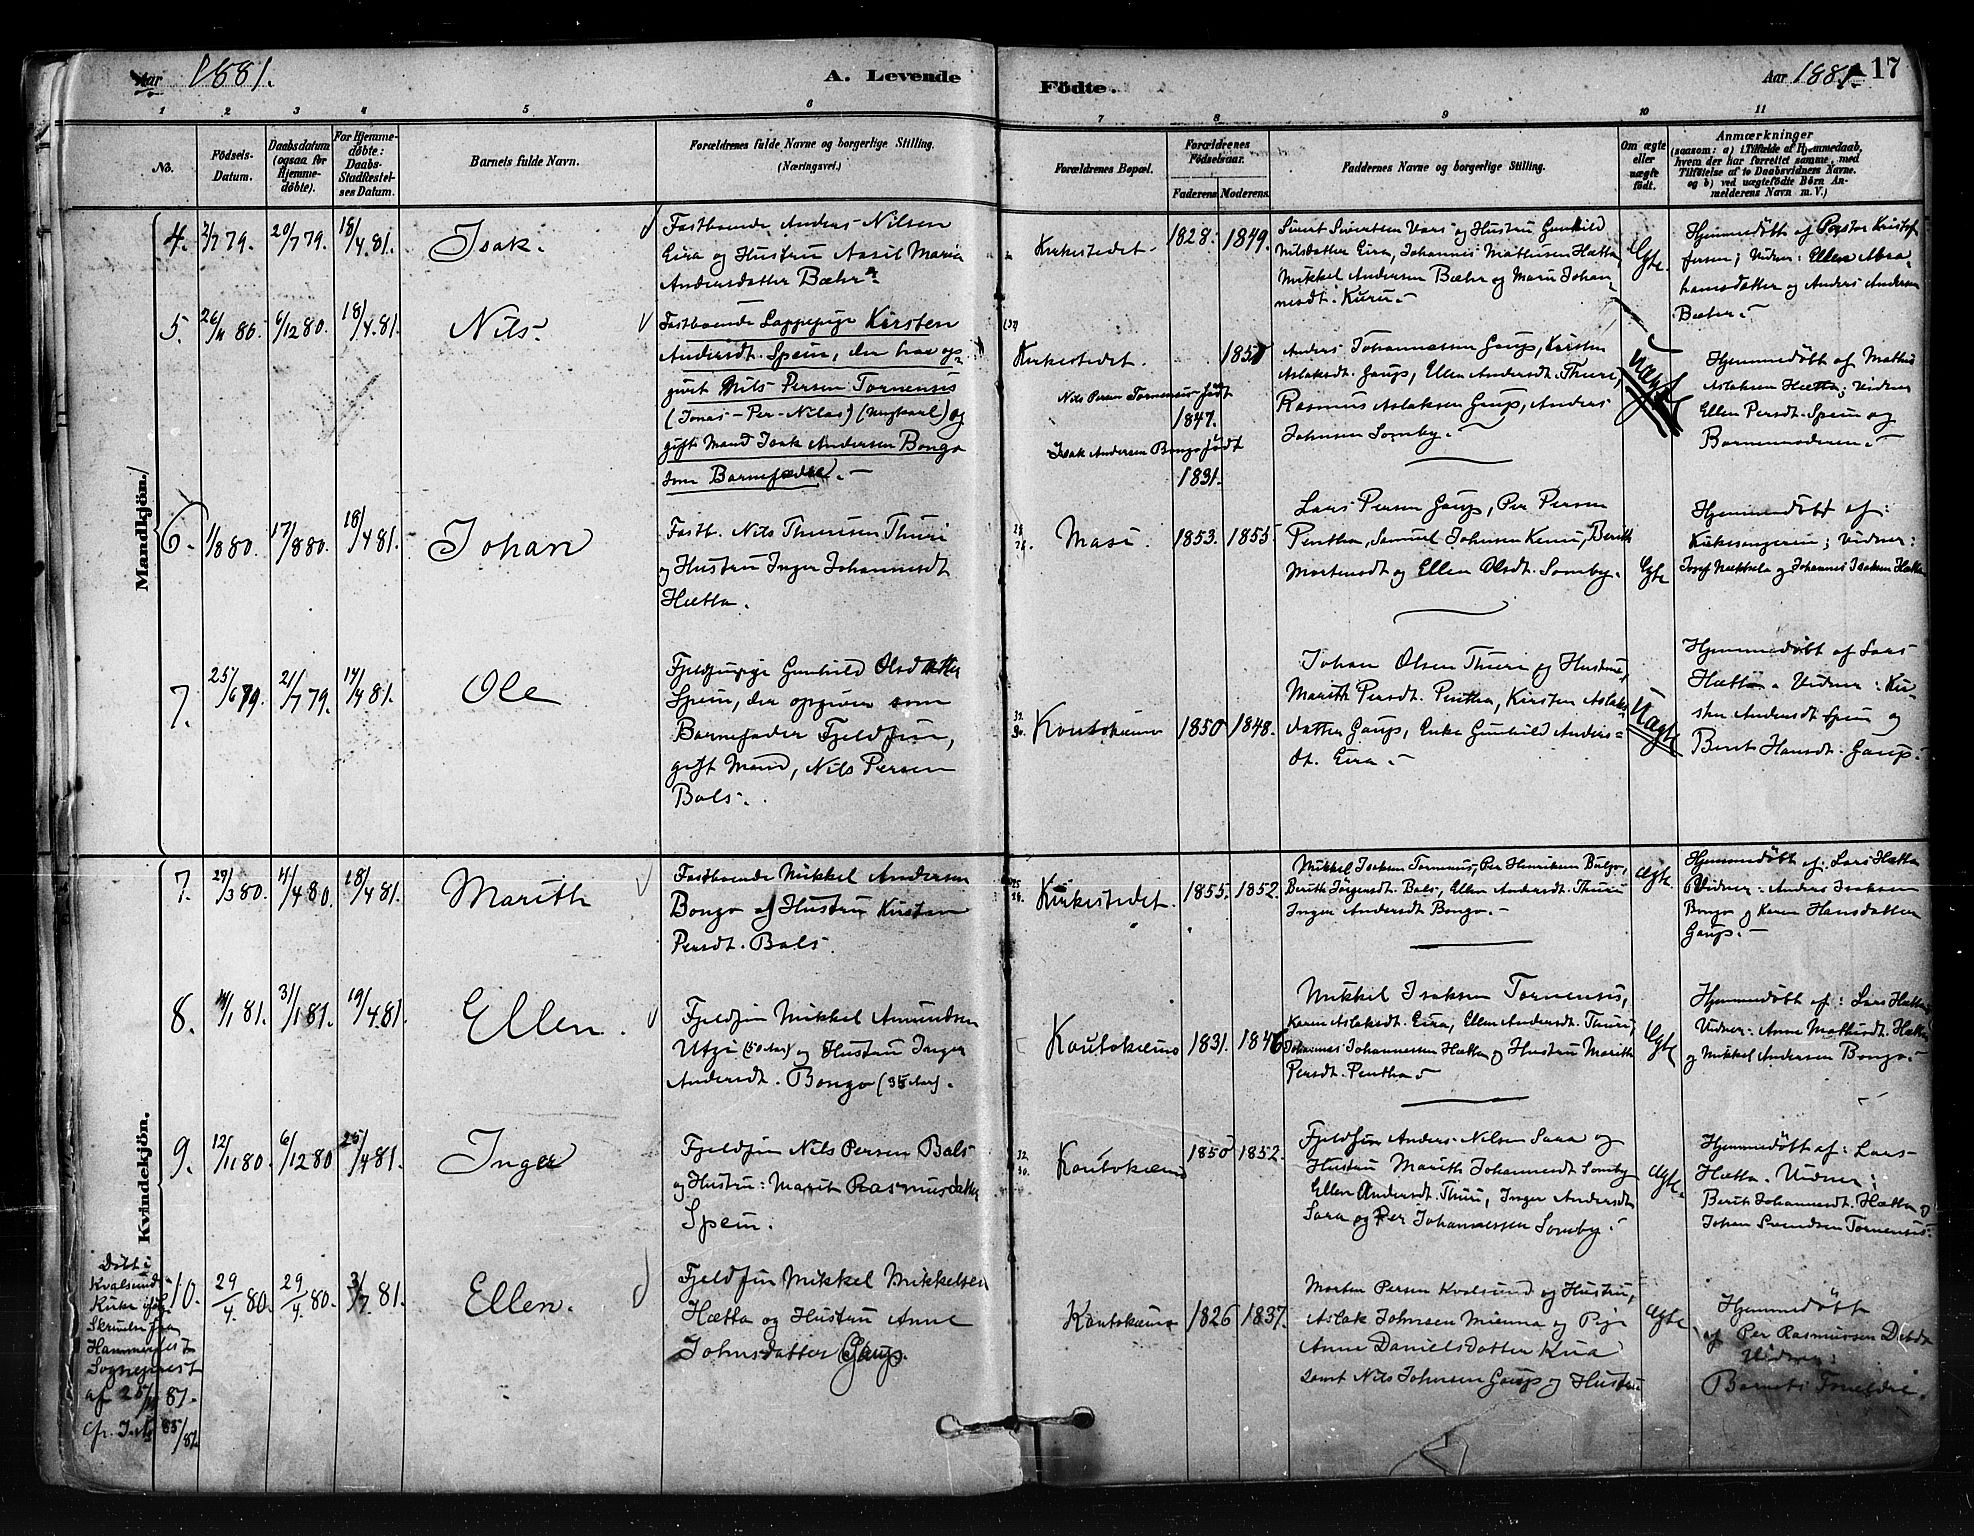 Aar 1881.
A. Levende
Födte.
Aar 1881.
17
1 2 3 4 5 6 7 8 9 10 11
No.
Födsels-
Datum.
Daabsdatum
(ogsaa for
Hjemme-
döbte).
For Hjemme-
döbte:
Daabs-
Stadfæstel-
ses Datum.
Barnets fulde Navn.
Forældrenes fulde Navne og borgerlige Stilling.
(Næringsvei.)
Forældrenes Bopæl.
Forældrenes
Födselsaar.
Faderens Moderens.
Faddernes Navne og borgerlige Stilling.
Om ægte
eller
uægte
födt.
Anmærkninger
(saasom: a) i Tilfælde af Hjemmedaab,
hvem der har forrettet samme, med
Tilföielse af to Daabsvidners Navne.
og b) ved uægtefödte Börn An-
melderens Navn m. V.)
Mandkjön.
4. 2/7 79. 20/7 79. 18/4 81. Isak.
Fastboende Anders Nilsen
Eira og Hustru Aasil Maria
Andersdatter Bæhr.
Kirkestedet. 1828. 1849.
Sivert Sivertsen Vars og Hustru Gunhild
Nilsdatter Eira, Johannes Mathisen Hætta,
Mikkel Andersen Bæhr og Marit Johan-
nesdt. Kuru.
Ægte.
Hjemmedöbt af Pastor Kristof
fersen; Vidner: Ellen Abra-
hamsdatter og Anders Andersen
Bæhr.
5. 26/11 80. 6/12 80. 18/4 81. Nils.
Fastboende Lappepige Kirsten
Andersdt. Spein, der har op-
givet Nils Persen Tornensis
(Jonas-Per-Nilas) (Ungkarl) og
gift Mand Isak Andersen Bongo
som Barnefædre.
Kirkestedet. 1851
Nils Persen Tornensis född
1847.
Isak Andersen Bongo födt
1831.
Anders Johannesen Gaup, Kirsten
Aslaksdt. Gaup, Ellen Andersdt. Thuri,
Rasmus Aslaksen Gaup, Anders
Johnsen Somby.
Uægte
Hjemmedöbt af Mathis
Aslaksen Hætta; Vidner
Ellen Persdt. Spein og
Barnemoderen.
6. 1/8 80. 17/8 80. 18/4 81. Johan
Fastb. Nils Thuresen Thuri
og Hustru Inger Johannesdt
Hætta.
Masi. 1853. 1855
Lars Persen Gaup, Per Persen
Pentha, Samuel Johnsen Kemi, Berith
Mortensdt og Ellen Olsdt. Somby.
Ægte
Hjemmedöbt af:
Kirkesangeren; Vidner:
Josef Nækkela og Johannes Isaksen Hætta
7. 25/6 79. 21/7 79. 14/4 81. Ole
Fjeldpige Gunhild Olsdatter
Spein, der opgiver som
Barnefader Fjeldfin,
gift Mand, Nils Persen
Bals.
Koutokeino 1850 1848.
Johan Olsen Thuri og Hustru,
Marith Persdt. Pentha, Kirsten Aslaks
datter Gaup, Enke Gunhild Anders-
dt. Eira.
Uægte
Hjemmedöbt af Lars
Hætta. Vidner: Kir-
sten Andersdt Spein og
Berit Hansdt. Gaup.
Kvindekjön.
7. 29/3 80. 4/4 80. 18/4 81. Marith
Fastboende Mikkel Andersen
Bongo og Hustru Kirsten
Persdt. Bals.
Kirkestedet. 1855. 1852.
Mikkel Isaksen Tornensis, Per Henriksen Buljo,
Berith Jörgensdt. Bals, Ellen Andersdt. Thuri
Inger Andersdt. Bongo.
Ægte
Hjemmedöbt af: Lars Hætta
Vidner: Anders Isaksen
Bongo og Karen Hansdatter
Gaup.
8. /1 81. 31/1 81. 19/4 81. Ellen.
Fjeldfin Mikkel Amundsen
Utzi (50 Aar) og Hustru Inger
Andersdt. Bongo (35 Aar).
Koutokeino 1831. 1846
Mikkel Isaksen Tornensis,
Karen Aslaksdt. Eira, Ellen Andersdt. Thuri,
Johannes Johannessen Hætta og Hustru Marith
Persdt. Pentha.
Ægte
Hjemmedöbt af: Lars Hætta
Vidner: Anne Mathisdt. Hætta
og Mikkel Andersen Bongo.
9. 12/11 80. 6/12 80 25/4 81. Inger
Fjeldfin Nils Persen Bals
og Hustru: Marit Rasmusdatter
Spein.
Koutokeino 1850 1852.
Fjeldfin Anders Nilsen Sara og
Hustru Marith Johannesdt Somby
Ellen Andersdt. Thuri, Inger Andersdt
Sara og Per Johannessen Somby.
Ægte.
Hjemmedöbt af: Lars
Hætta. Vidner:
Berit Johannesdt. Hætta og
Johan Svendsen Tornensis.
Döbt i
Kvalsund
Kirke ifölge
Skrivelse fra
Hammerfest
Sogneprest
af 25/ 87.
cfr. 85/87
10. 29/4. 80. 29/4. 80. 3/7 81. Ellen.
Fjeldfin Mikkel Mikkelsen
Hætta og Hustru Anne
Johnsdatter Gaup.
Koutokeino 1826 1837.
Morten Persen Kvalsund og Hustru,
Aslak Johnsen Mienna og Pige
Anne Danielsdatter Kua
samt Nils Johnsen Gaup og Hustru
Ægte
Hjemmedöbt
af Per Rasmussen
Vidner:
Barnets Forældre.